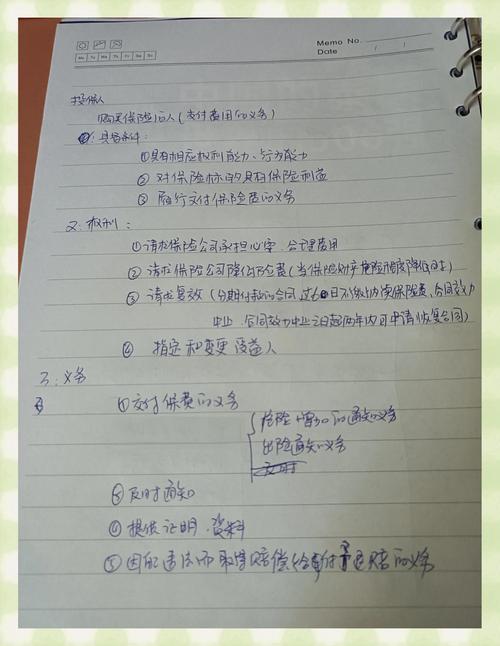 Memo No.
Mo Tu We Th Fr Sa Su
Date / /
投保人
购买保险的人(支付费用的义务)
1. 具备条件:
①具有相应权利能力、行为能力
② 对保险标的具有保险利益
③ 履行支付保险费的义务
2. 权利:
①请求保险公司承担必要、合理费用
② 请求保险公司降低保费(当保险财产危险程度降低时)
③ 请求复效(分期付款的合同,过60日不缴纳续保险费,合同效力
中止,合同效力中止之日起两年内可申请恢复合同)
④ 指定和变更受益人
3. 义务
①交付保费的义务
危险增加的通知义务
出险通知义务
③及时通知
④提供证明、资料
⑤因配 违法而取得赔偿(给付)退赔的义务